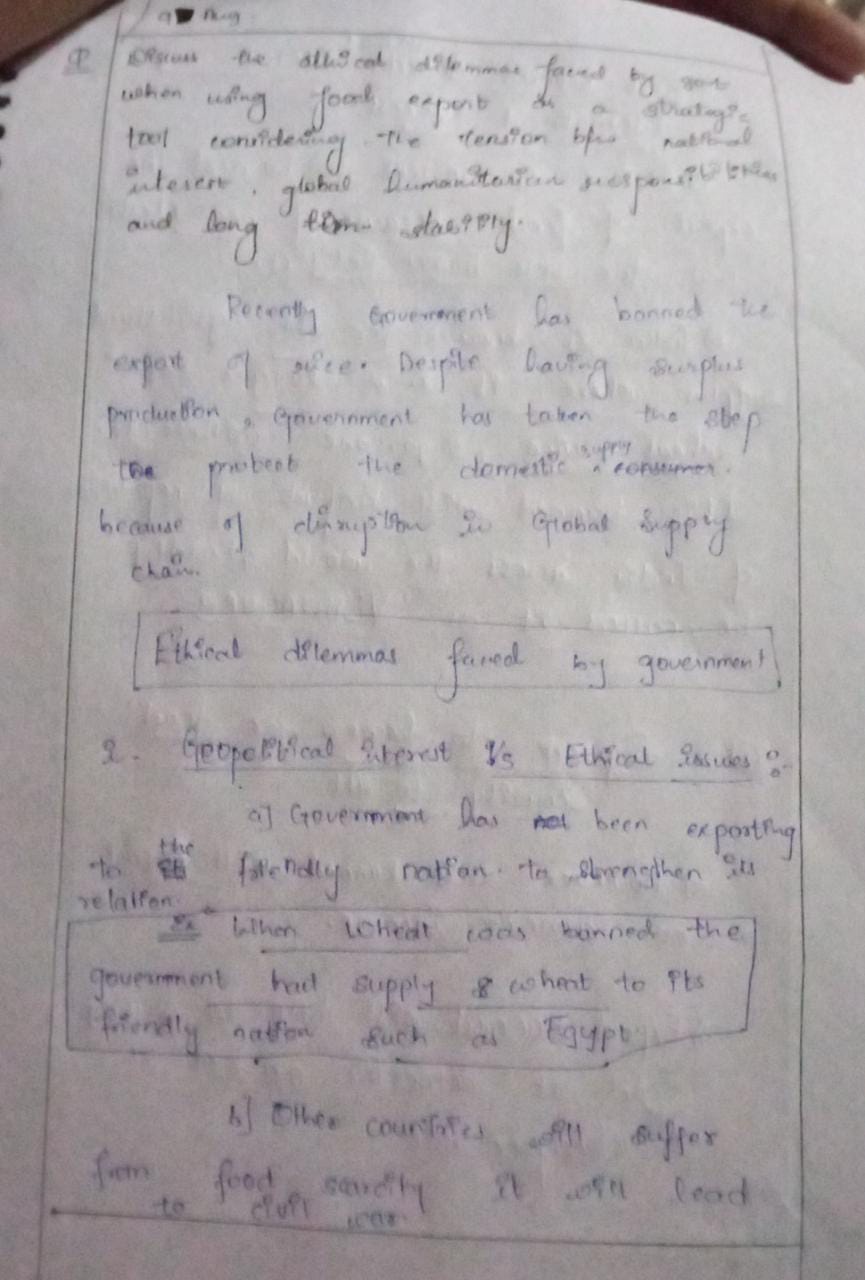 9 Aug
Q Discuss the ethical dilemmas faced by govt
when using food export as a strategic
tool considering the tension b/w national
interest, global humanitarian responsibilities
and long term stability.
Recently Government has banned the
export of rice. Despite having surplus
production, Government has taken the step
to protect the domestic supply consumer.
because of disruption in Global Supply
chain.
Ethical dilemmas faced by government
2. Geopolitical interest Vs Ethical issues :-
a] Government has been exporting
to the friendly nation. to strengthen its
relation.
Ex When wheat was banned the
government had supply wheat to its
friendly nation such as Egypt
b] Other countries will suffer
from food scarcity it will lead
to civil war.